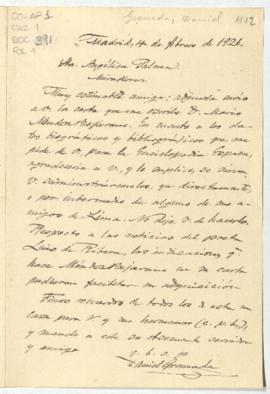 Granada, Daniel 1112
CO-AP 1
CAJ. 1
DOC 391
FOL 1
Madrid, 4 de febrero de 1926.
Sra. Angélica Palma
Miraflores.
Muy estimable amiga: adjunta envío
a V. la carta que me escribe D. Mario
Méndez Bejarano. En cuanto a los da-
tos biográficos y bibliográficos que me
pide de V. para la Enciclopedia Espasa,
agradecería a V., y le suplico, se sirva
V. suministrármelos, ya directamente,
ya por intermedio de alguno de mis a-
migos de Lima. No deje V. de hacerlo.
Respecto a las noticias del poeta
Luis de Ribera, las indicaciones q
hace Méndez Bejarano en su carta
pudieran facilitar su adquisición.
Finos recuerdos de todos los de esta su
casa para V. y sus hermanas (c. p. b.),
y mande a este su obsecuente servidor
y amigo
q. b. s. p.
Daniel Granada